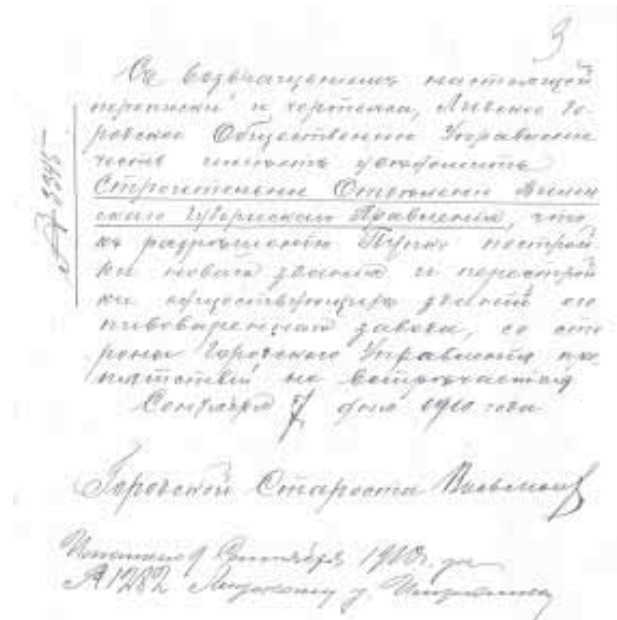 3
Съ возвращеніемъ настоящей
переписки и чертежа, Лидское Го-
родское Общественное Управленіе
честь имѣетъ увѣдомить
Строительное Отдѣленіе Вилен
скаго Губернскаго Правленія, что
къ разрѣшенію Пупко построй
ки новаго зданія и перестрой
ки существующихъ зданій его
пивовареннаго завода, со сто
роны Городского Управленія пре
пятствій не встрѣчается
Сентября 7 дня 1910 года
Городской Староста
1910 г.
№ 1282 Лидскому у.